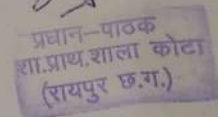 प्रधान-पाठक
शा.प्राथ.शाला कोटा
(रायपुर छ.ग.)